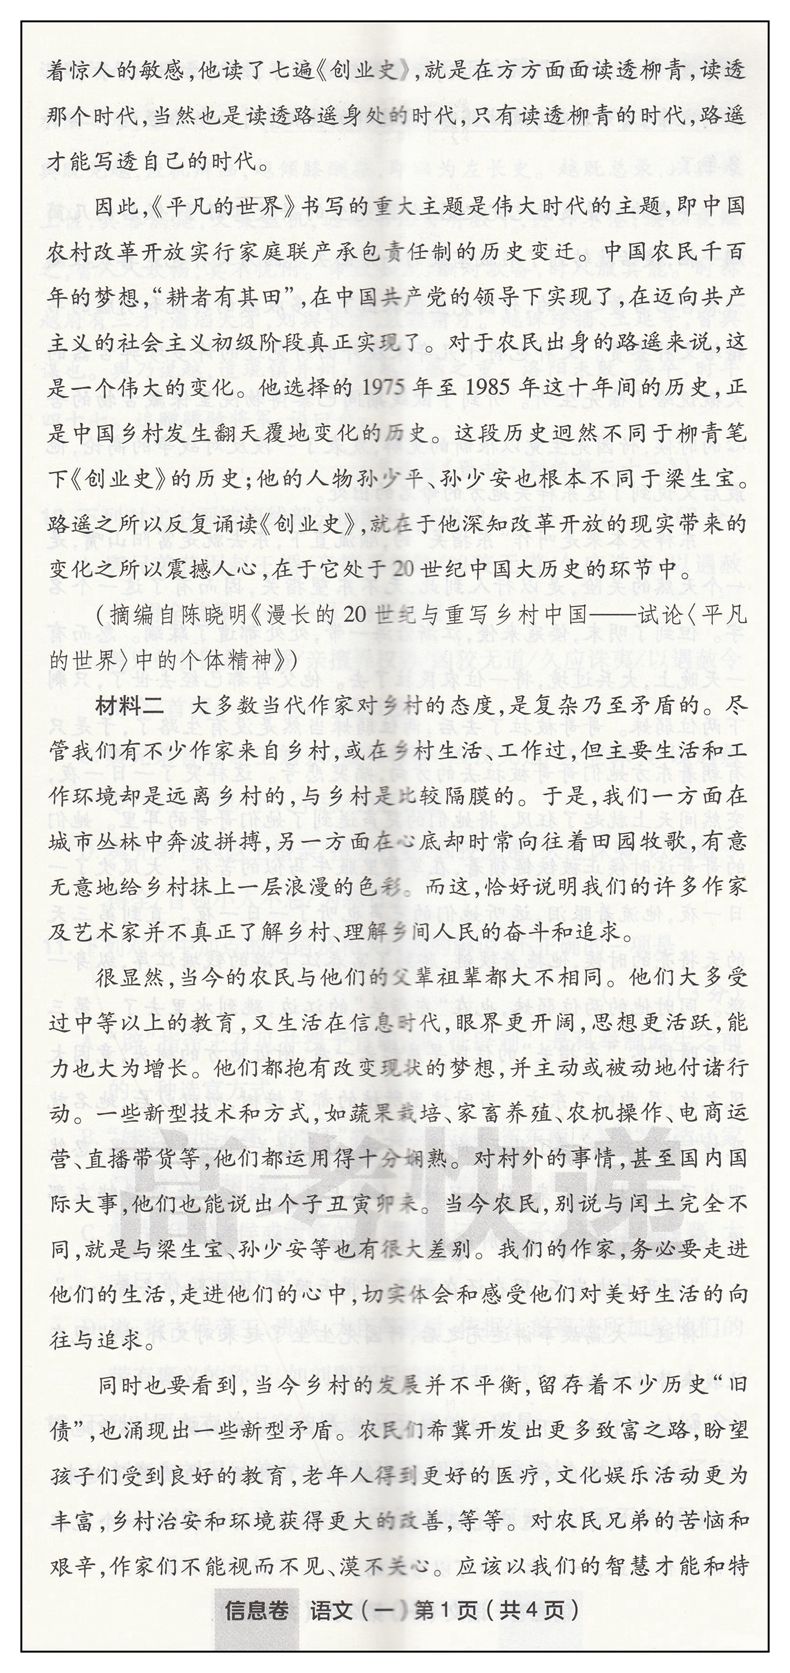 着惊人的敏感,他读了七遍《创业史》,就是在方方面面读透柳青,读透
那个时代,当然也是读透路遥身处的时代,只有读透柳青的时代,路遥
才能写透自己的时代。
因此,《平凡的世界》书写的重大主题是伟大时代的主题,即中国
农村改革开放实行家庭联产承包责任制的历史变迁。中国农民千百
年的梦想,“耕者有其田”,在中国共产党的领导下实现了,在迈向共产
主义的社会主义初级阶段真正实现了。对于农民出身的路遥来说,这
是一个伟大的变化。他选择的1975年至1985年这十年间的历史,正
是中国乡村发生翻天覆地变化的历史。这段历史迥然不同于柳青笔
下《创业史》的历史;他的人物孙少平、孙少安也根本不同于梁生宝。
路遥之所以反复诵读《创业史》,就在于他深知改革开放的现实带来的
变化之所以震撼人心,在于它处于20世纪中国大历史的环节中。
(摘编自陈晓明《漫长的20世纪与重写乡村中国——试论〈平凡
的世界〉中的个体精神》)
材料二 大多数当代作家对乡村的态度,是复杂乃至矛盾的。尽
管我们有不少作家来自乡村,或在乡村生活、工作过,但主要生活和工
作环境却是远离乡村的,与乡村是比较隔膜的。于是,我们一方面在
城市丛林中奔波拼搏,另一方面在心底却时常向往着田园牧歌,有意
无意地给乡村抹上一层浪漫的色彩。而这,恰好说明我们的许多作家
及艺术家并不真正了解乡村、理解乡间人民的奋斗和追求。
很显然,当今的农民与他们的父辈祖辈都大不相同。他们大多受
过中等以上的教育,又生活在信息时代,眼界更开阔,思想更活跃,能
力也大为增长。他们都抱有改变现状的梦想,并主动或被动地付诸行
动。一些新型技术和方式,如蔬果栽培、家畜养殖、农机操作、电商运
营、直播带货等,他们都运用得十分娴熟。对村外的事情,甚至国内国
际大事,他们也能说出个子丑寅卯来。当今农民,别说与闰土完全不
同,就是与梁生宝、孙少安等也有很大差别。我们的作家,务必要走进
他们的生活,走进他们的心中,切实体会和感受他们对美好生活的向
往与追求。
同时也要看到,当今乡村的发展并不平衡,留存着不少历史“旧
债”,也涌现出一些新型矛盾。农民们希冀开发出更多致富之路,盼望
孩子们受到良好的教育,老年人得到更好的医疗,文化娱乐活动更为
丰富,乡村治安和环境获得更大的改善,等等。对农民兄弟的苦恼和
艰辛,作家们不能视而不见、漠不关心。应该以我们的智慧才能和特
高考快递
信息卷 语文(一)第1页(共4页)